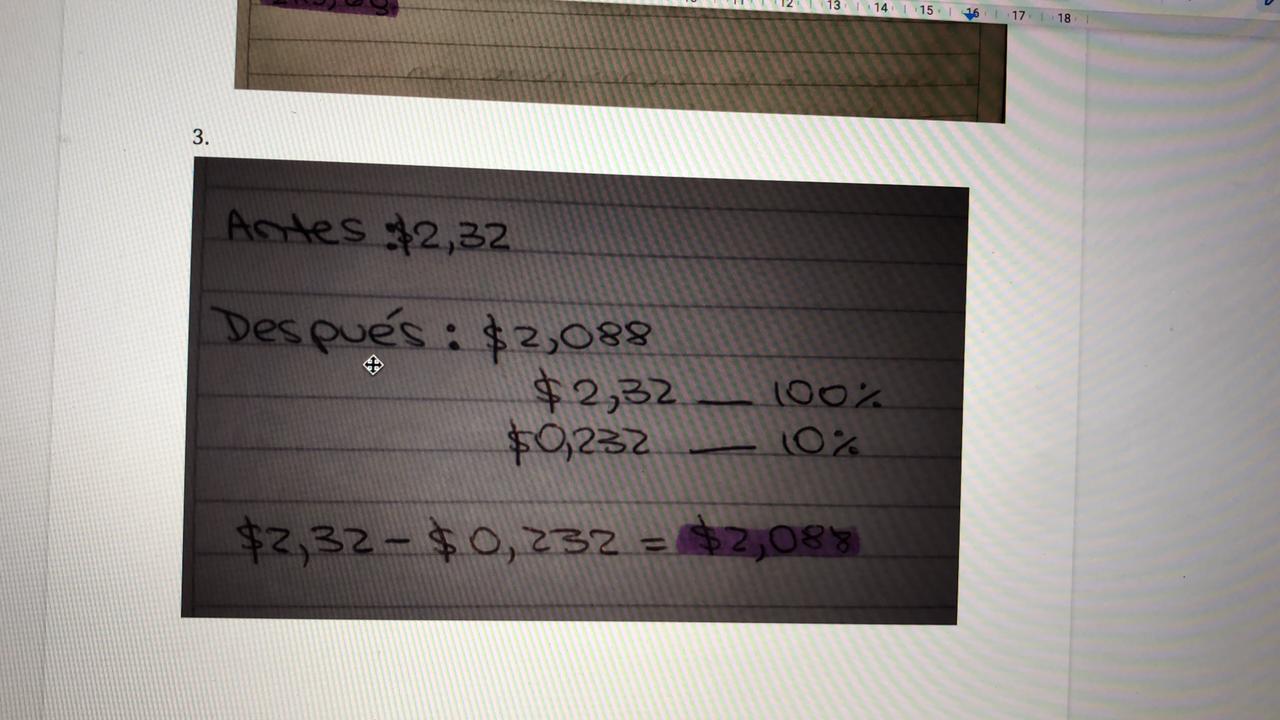 12 13 14 15 16 17 18
3.
Antes:$2,32
Después: $2,088
$2,32 — 100%
$0,232 — 10%
$2,32 - $0,232 = $2,088